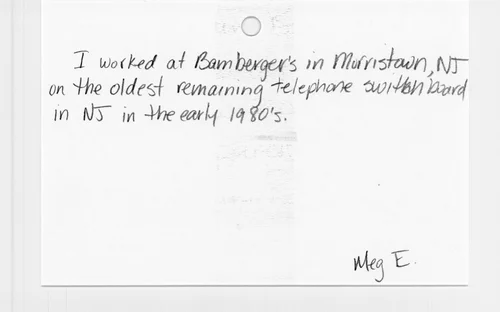 I worked at Bamberger's in Morristown, NJ
on the oldest remaining telephone switchboard
in NJ in the early 1980's.
Meg E.